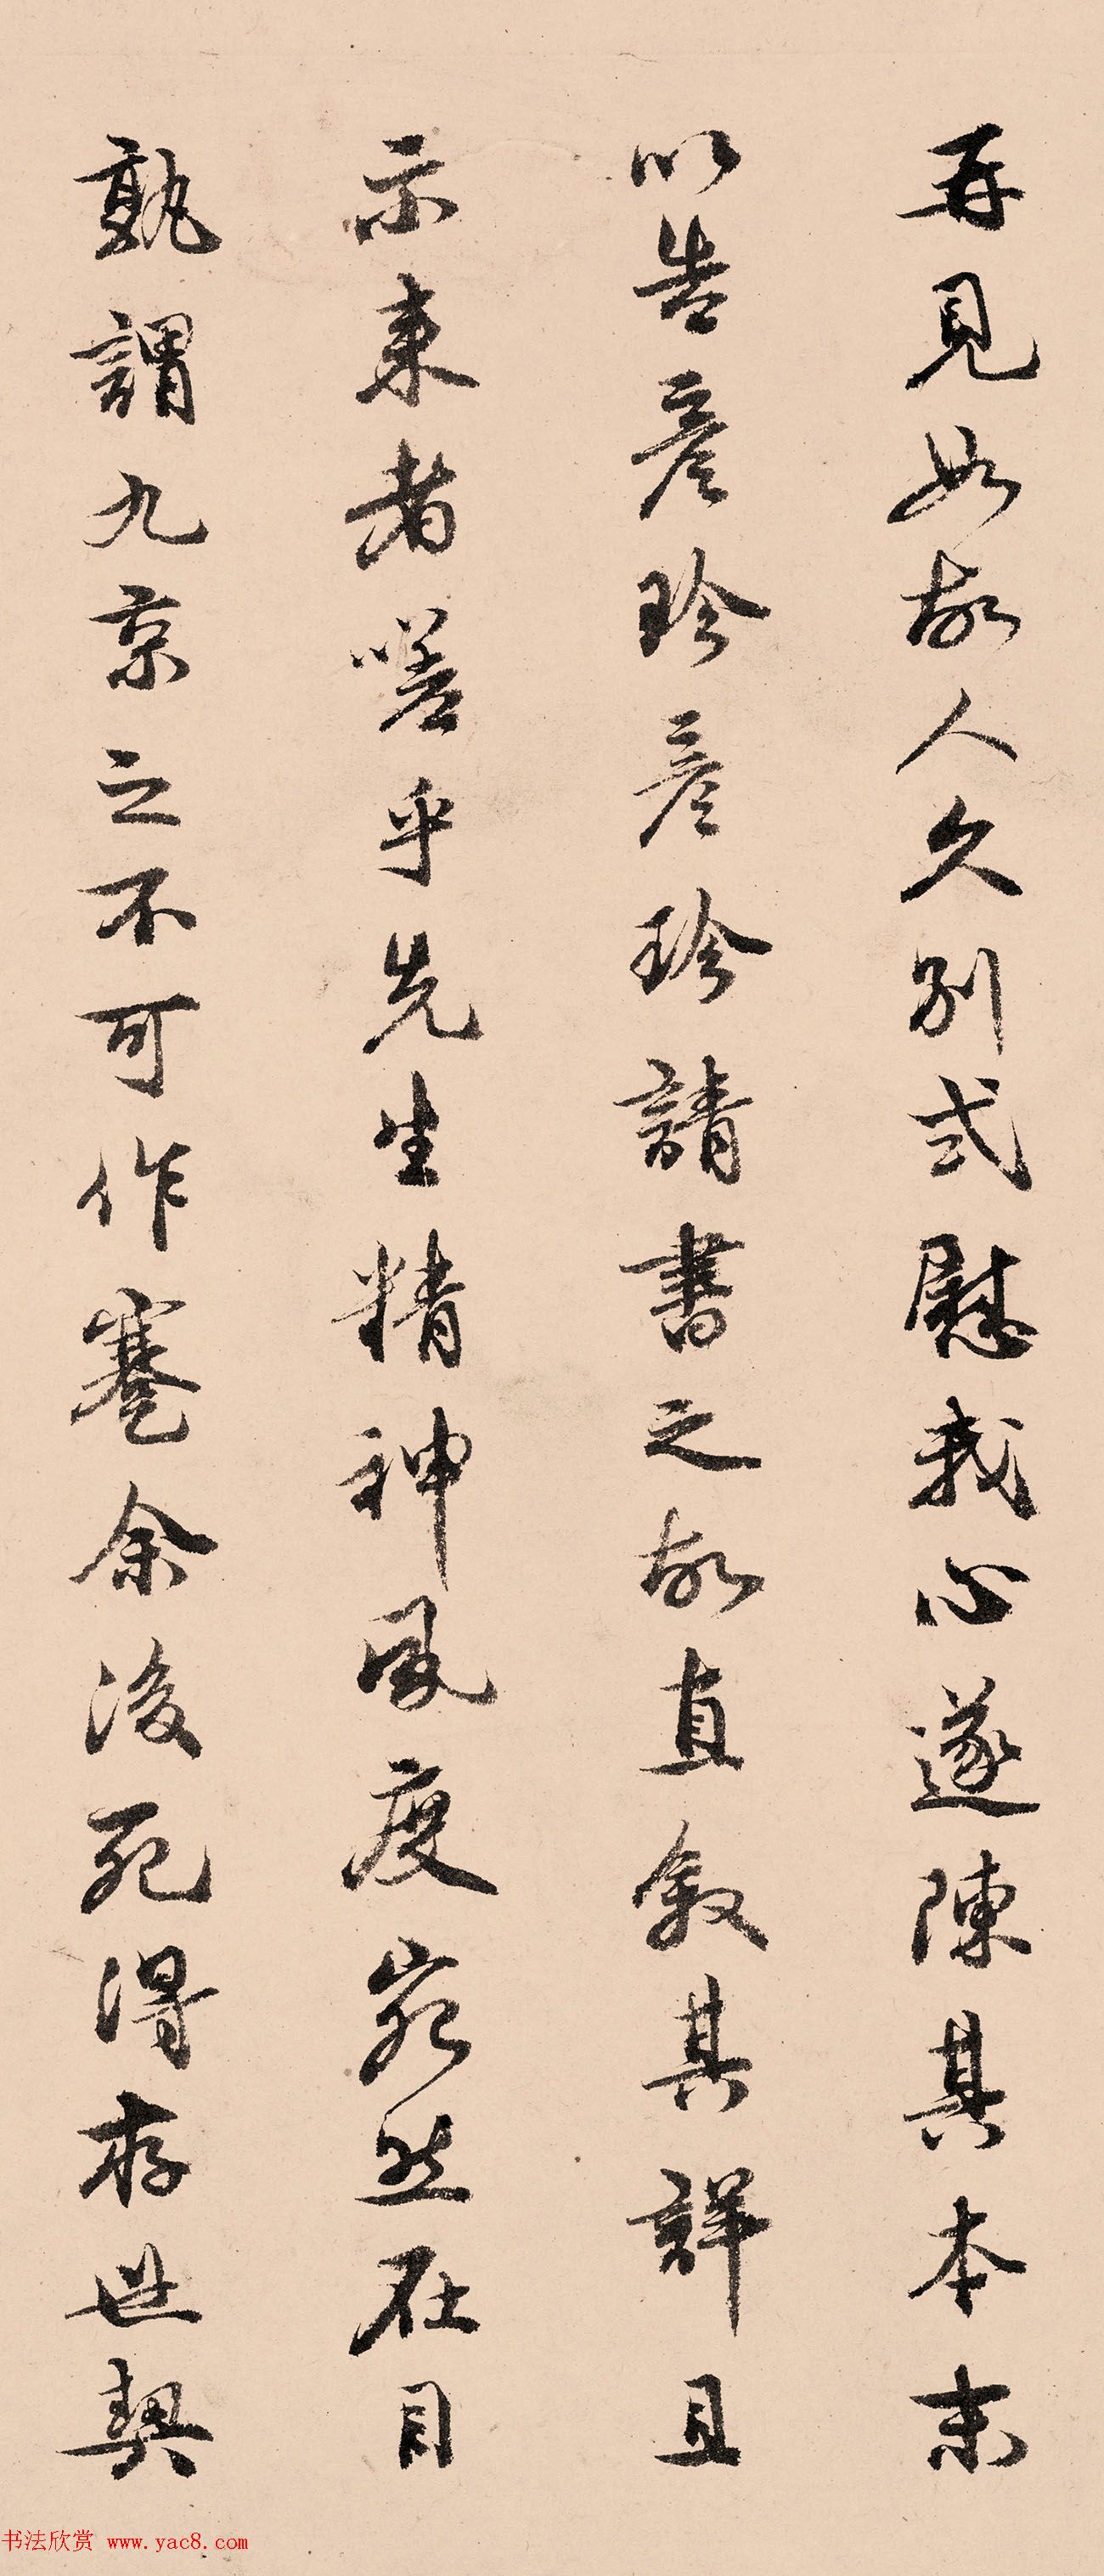 再見如故人久別式慰我心遂陳其本末
以告彥珍彥珍請書之故直敘其詳且
示来者嗟乎先生精神風度宛然在目
孰謂九京之不可作蹇余後死得存世契
书法欣赏 www.yac8.com